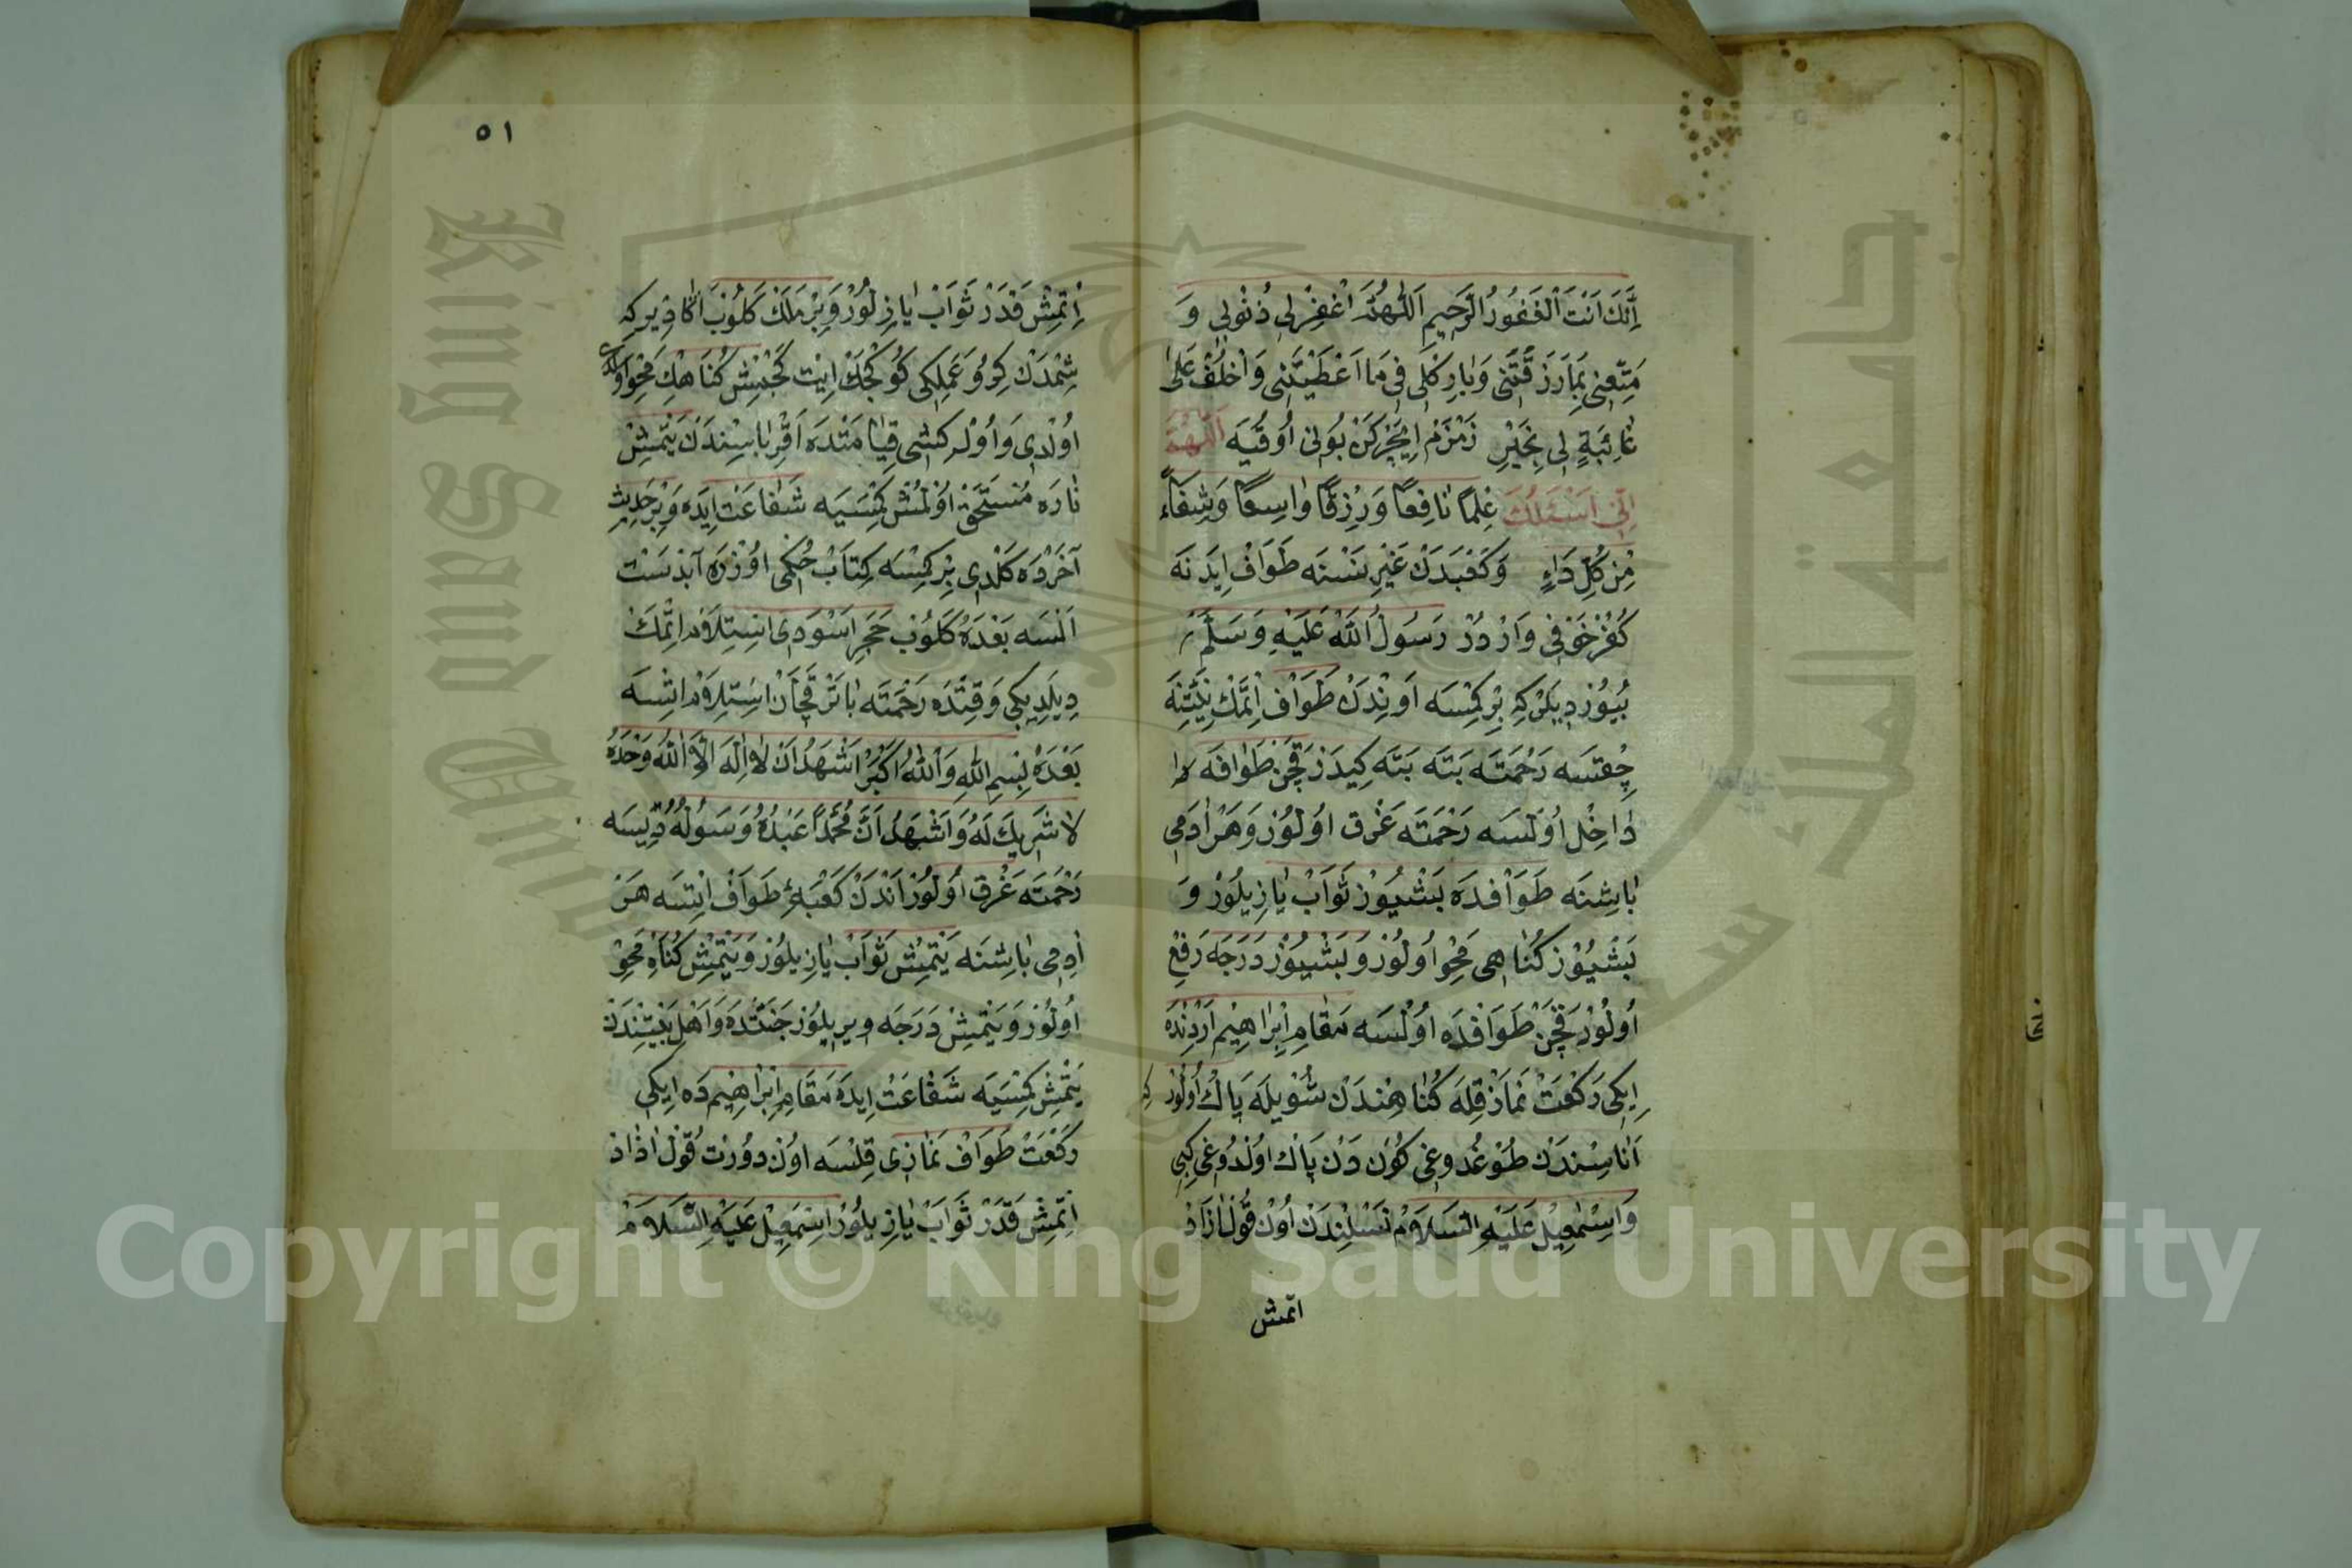 اِنَّكَ اَنْتَ الْغَفُورُ الرَّحِيمِ اَللّٰهُمَّ اغْفِرْلِى ذُنُوبِى وَ
مَتِّعْنِى بِمَا رَزَقْتَنِى وَبَارِكْ لِى فِى مَا اَعْطَيْتَنِى وَاخْلُفْ عَلَى
غَائِبَةٍ لِى بِخَيْرِ زَمْزَمْ اِيچَرْكَنْ بُونِى اُوقُيَه اَللّٰهُمَّ
اِنِّى اَسْئَلُكَ عِلْمًا نَافِعًا وَرِزْقًا وَاسِعًا وَشِفَاءً
مِنْ كُلِّ دَاءٍ وَكَعْبَدَنْ غَيْرِ نَسْنَه طَوَافْ اِيدَنَه
كُفُرْ خَوْفِى وَارْدُرْ رَسُولُ اللّٰهْ عَلَيْهِ وَسَلَّمْ
بُيُورْدِيلَرْكِه بِرْ كِمْسَه اَوِنْدَنْ طَوَافْ اِتْمَكْ نِيَّتِنَه
چِقْسَه رَحْمَتَه بَتَه بَتَه كِيدَرْ قَچَنْ طَوَافَه
دَاخِلْ اُولْسَه رَحْمَتَه غَرْقْ اُولُورْ وَهَرْ اَدِمِى
بَاشِنَه طَوَافْدَه بَشْيُوزْ ثَوَابْ يَازِيلُورْ وَ
بَشْيُوزْ كُنَاهِى مَحْوْ اُولُورْ وَبَشْيُوزْ دَرَجَه رَفْعْ
اُولُورْ قَچَنْ طَوَافْدَه اُولْسَه مَقَامِ اِبْرَاهِيمْ اَرْدِنْدَه
اِيكِى رَكْعَتْ نَمَازْ قِلَه كُنَاهِنْدَنْ شُويْلَه پَاكْ اُولُورْ كِه
اَنَاسِنْدَنْ طُوغْدُوغِى كُونْ دَنْ پَاكْ اُولْدُوغِى كِبِى
وَاِسْمٰعِيلْ عَلَيْهِ السَّلَامْ نَسْلِنْدَنْ اُونْ قُولْ اَزَادْ
اتمش
٥١
اِتْمِشْ قَدَرْ ثَوَابْ يَازِلُورْ وَبِرْ مَلَكْ كَلُوبْ اَكَا دِيرْكِه
شِمْدَنْ كِرُو عَمَلِكِى كُوكْجَكْ اِيتْ كَچْمِشْ كُنَاهِكْ مَحْوْ
اُولْدِى وَاُولْ كِشِى قِيَامَتْدَه اَقْرِبَاسِنْدَنْ يَتْمِشْ
نَارَه مُسْتَحَقْ اُولْمُشْ كِمْسَيَه شَفَاعَتْ اِيدَه وَبِرْ حَدِيثِ
آخَرْدَه كَلْدِى بِرْ كِمْسَه كِتَابْ حُكْمِى اُوزْرَه آبْدَسْتْ
اَلْسَه بَعْدَهُ كَلُوبْ حَجَرِ اَسْوَدِى اِسْتِلَامْ اِتْمَكْ
دِيلَدِيكِى وَقِتْدَه رَحْمَتَه بَاتَرْ قَچَانْ اِسْتِلَامْ اِتْسَه
بَعْدَهُ بِسْمِ اللّٰهِ وَاللّٰهُ اَكْبَرُ اَشْهَدُ اَنْ لَا اِلٰهَ اِلَّا اللّٰهُ وَحْدَهُ
لَا شَرِيكَ لَهُ وَاَشْهَدُ اَنَّ مُحَمَّدًا عَبْدُهُ وَرَسُولُهُ دِيسَه
رَحْمَتَه غَرْقْ اُولُورْ اَنْدَنْ كَعْبَهِٔ طَوَافْ اِتْسَه هَرْ
اَدِمِى بَاشِنَه يَتْمِشْ ثَوَابْ يَازِيلُورْ وَيَتْمِشْ كُنَاهِ مَحْوْ
اُولُورْ وَيَتْمِشْ دَرَجَه وِيرِيلُورْ جَنَّتْدَه وَاَهْلِ بَيْتِنْدَنْ
يَتْمِشْ كِمْسَيَه شَفَاعَتْ اِيدَه مَقَامِ اِبْرَاهِيمْ دَه اِيكِى
رَكْعَتْ طَوَافْ نَمَازِى قِلْسَه اُونْ دُورْتْ قُولْ اَزَادْ
اِتْمِشْ قَدَرْ ثَوَابْ يَازِيلُورْ اِسْمٰعِيلْ عَلَيْهِ السَّلَامْ
Copyright © King Saud University
جامعة الملك سعود
King Saud University